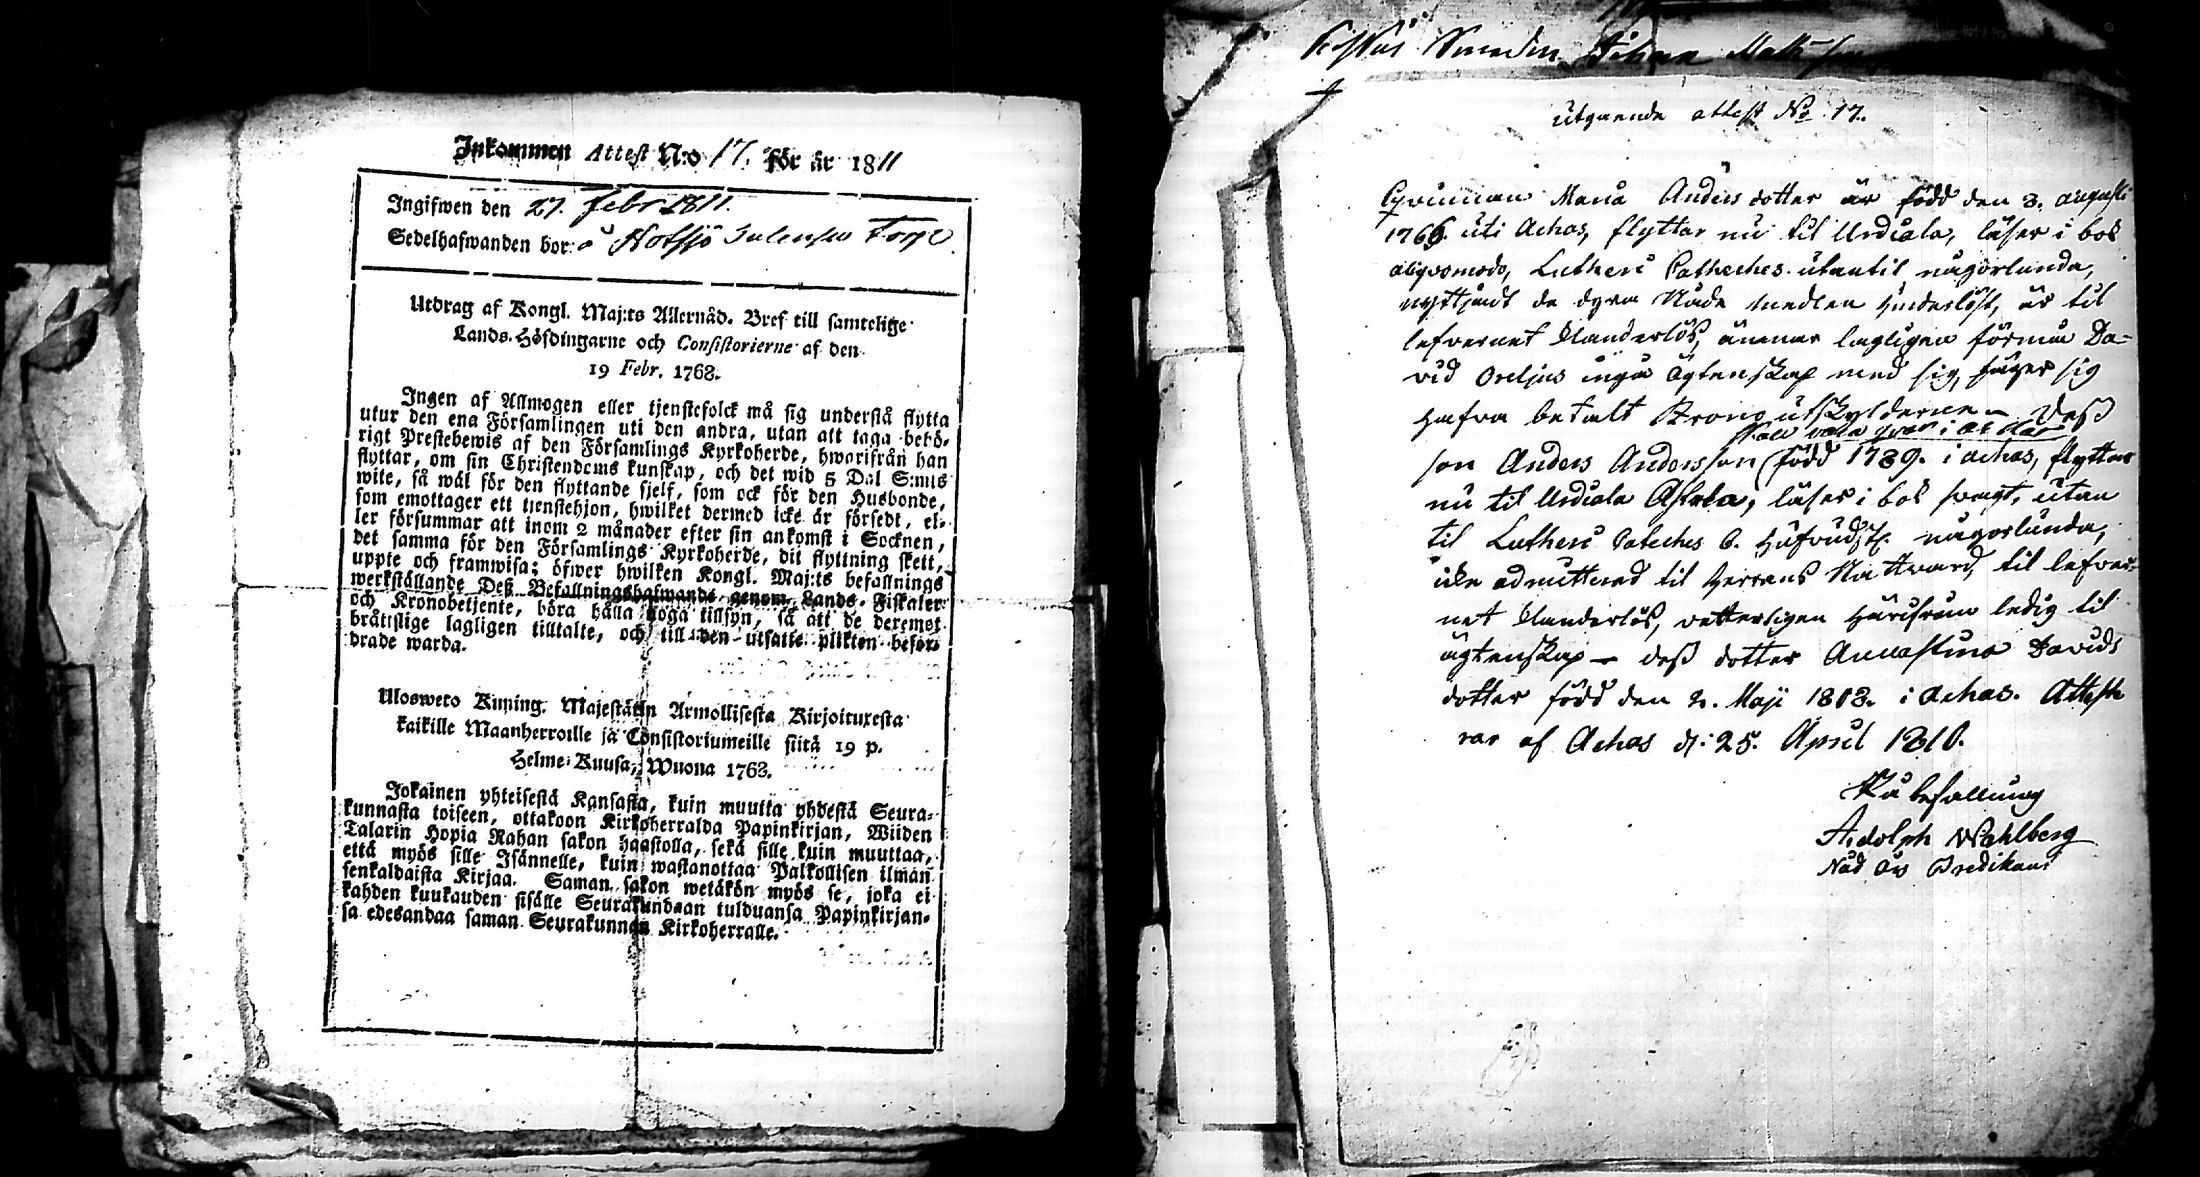 Inkommen Attest N:o 17. för år 1811
Ingifwen den 27. febr 1811.
Sedelhafwanden bor: å Notsjö Torp.
Utdrag af Kongl. Maj:ts Allernåd. Bref till samtelige
Lands-Höfdingarne och Consistorierne af den
19 Febr. 1768.
Ingen af Allmogen eller tjenstefolck må sig understå flytta
utur den ena Församlingen uti den andra, utan att taga behö-
rigt Prestebewis af den Församlings Kyrkoherde, hwarifrån han
flyttar, om sin Christendoms kunskap, och det wid 5 Dal S:mts
wite, så wäl för den flyttande sjelf, som ock för den Husbonde,
som emottager ett tjenstehjon, hwilket dermed icke är försedt, el-
ler försummar att inom 2 månader efter sin ankomst i Socknen,
det samma för den Församlings Kyrkoherde, dit flyttning skett,
uppte och framwisa; öfwer hwilken Kongl. Maj:ts befallnings
werkställande Deß Befallningshafwande genom Lands-Fiskaler
och Kronobetjente, böra hålla noga tillsyn, så att de deremot
bråttslige lagligen tilltalte, och till den utsatte plikten beför-
drade warda.
Ulosweto Kuning. Majestätin Armollisesta Kirjoituxesta
kaikille Maanherroille ja Consistoriumeille siitä 19 p.
Helme-Kuusa, Wuona 1768.
Jokainen yhteisestä Kansasta, kuin muutta yhdestä Seura-
kunnasta toiseen, ottakoon Kirkoherralda Papinkirjan, Wiiden
Talarin Hopia Rahan sakon haastolla, sekä sille kuin muuttaa,
että myös sille Isännelle, kuin wastanottaa Palkollisen ilman
senkaldaista Kirjaa. Saman sakon wetäkön myös se, joka ei
kahden kuukauden sisälle Seurakundaan tulduansa Papinkirjan-
sa edesandaa saman Seurakunnan Kirkoherralle.
Smeden Johan Matsson
utgaende attest No 17.
Qvinnan Maria Anders dotter är född den 3. augusti
1766. uti Achas, flyttar nu til Urdiala, läser i bok
aliqvomodo, Lutheri Catheches. utantil någorlunda,
nyttjadt de dyra Nåde medlen hinderlöst, är til
lefvernet klanderlös, ämnar lagligen förmå Da-
vid Oreljus ingå ägtenskap med sig, säger sig
hafva betalt Krono utskylderne – Deß
skall vara qvar i
son Anders Andersson (född 1789. i achas, flyttar
nu til Urdiala, läser i bok svagt, utan
til Lutheri Cateches C. hufvudst. någorlunda,
icke admitterad til Herrans Nattvard, til lefver-
net klanderlös, vetterligen härifrån ledig til
ägtenskap – deß dotter Annastina Davids
dotter född den 2. Maji 1803. i achas. Atteste
rar af Achas d: 25. April 1810.
På befallning
Adolph Wahlberg
Nåd års Predikant